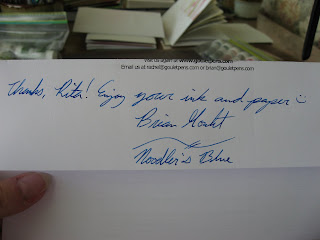 Visit us again at www.gouletpens.com
Email us at rachel@gouletpens.com or brian@gouletpens.com
Thanks, Rita! Enjoy your ink and paper :)
Brian Goulet
Noodler's Blue